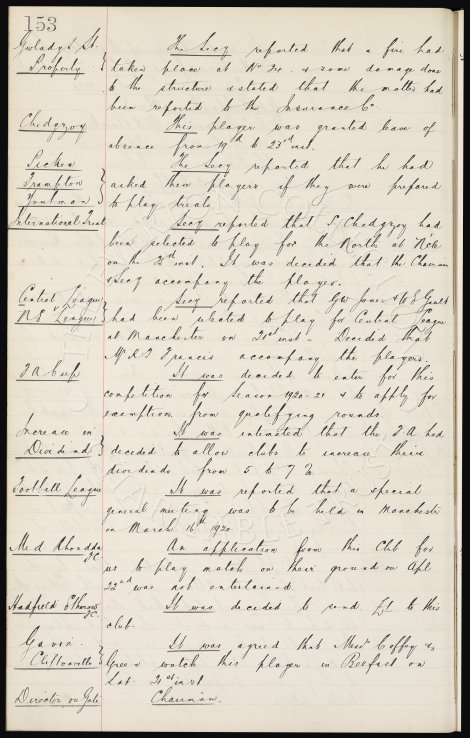 153
Gwladys St. The Secy reported that a fire had
Property taken place at No 24 & some damage done
to the structure & stated that the matter had
been reported to the Insurance Co
Chedgzoy This player was granted leave of
absence from 19th to 23rd inst.
The Secy reported that he had
Frampton asked these players if they were prepared
to play trials
International Trial Secy reported that S. Chedgzoy had
been selected to play for the North at Ncle
on the inst. It was decided that the Chairman
& Secy accompany the player.
Central League Secy reported that Geo Jones & W E Gault
N E League had been selected to play for Central League
at Manchester on 21st inst - Decided that
Mr D J Francis accompany the players.
F A Cup It was decided to enter for this
competition for season 1920-21 & to apply for
exemption from qualifying rounds.
Increase in It was intimated that the F.A had
Dividend decided to allow clubs to increase their
dividends from 5 to 7 %
Football League It was reported that a special
general meeting was to be held in Manchester
on March 16th 1920
Mid Rhondda F.C An application from this Club for
us to play match on their ground on Apl
22nd was not entertained.
Hadfield & C It was decided to send to this
club.
Gavin It was agreed that Messrs Coffey &
Cliftonville Green watch this player in Belfast on
Sat. 21st inst
Director on Gate Chairman.